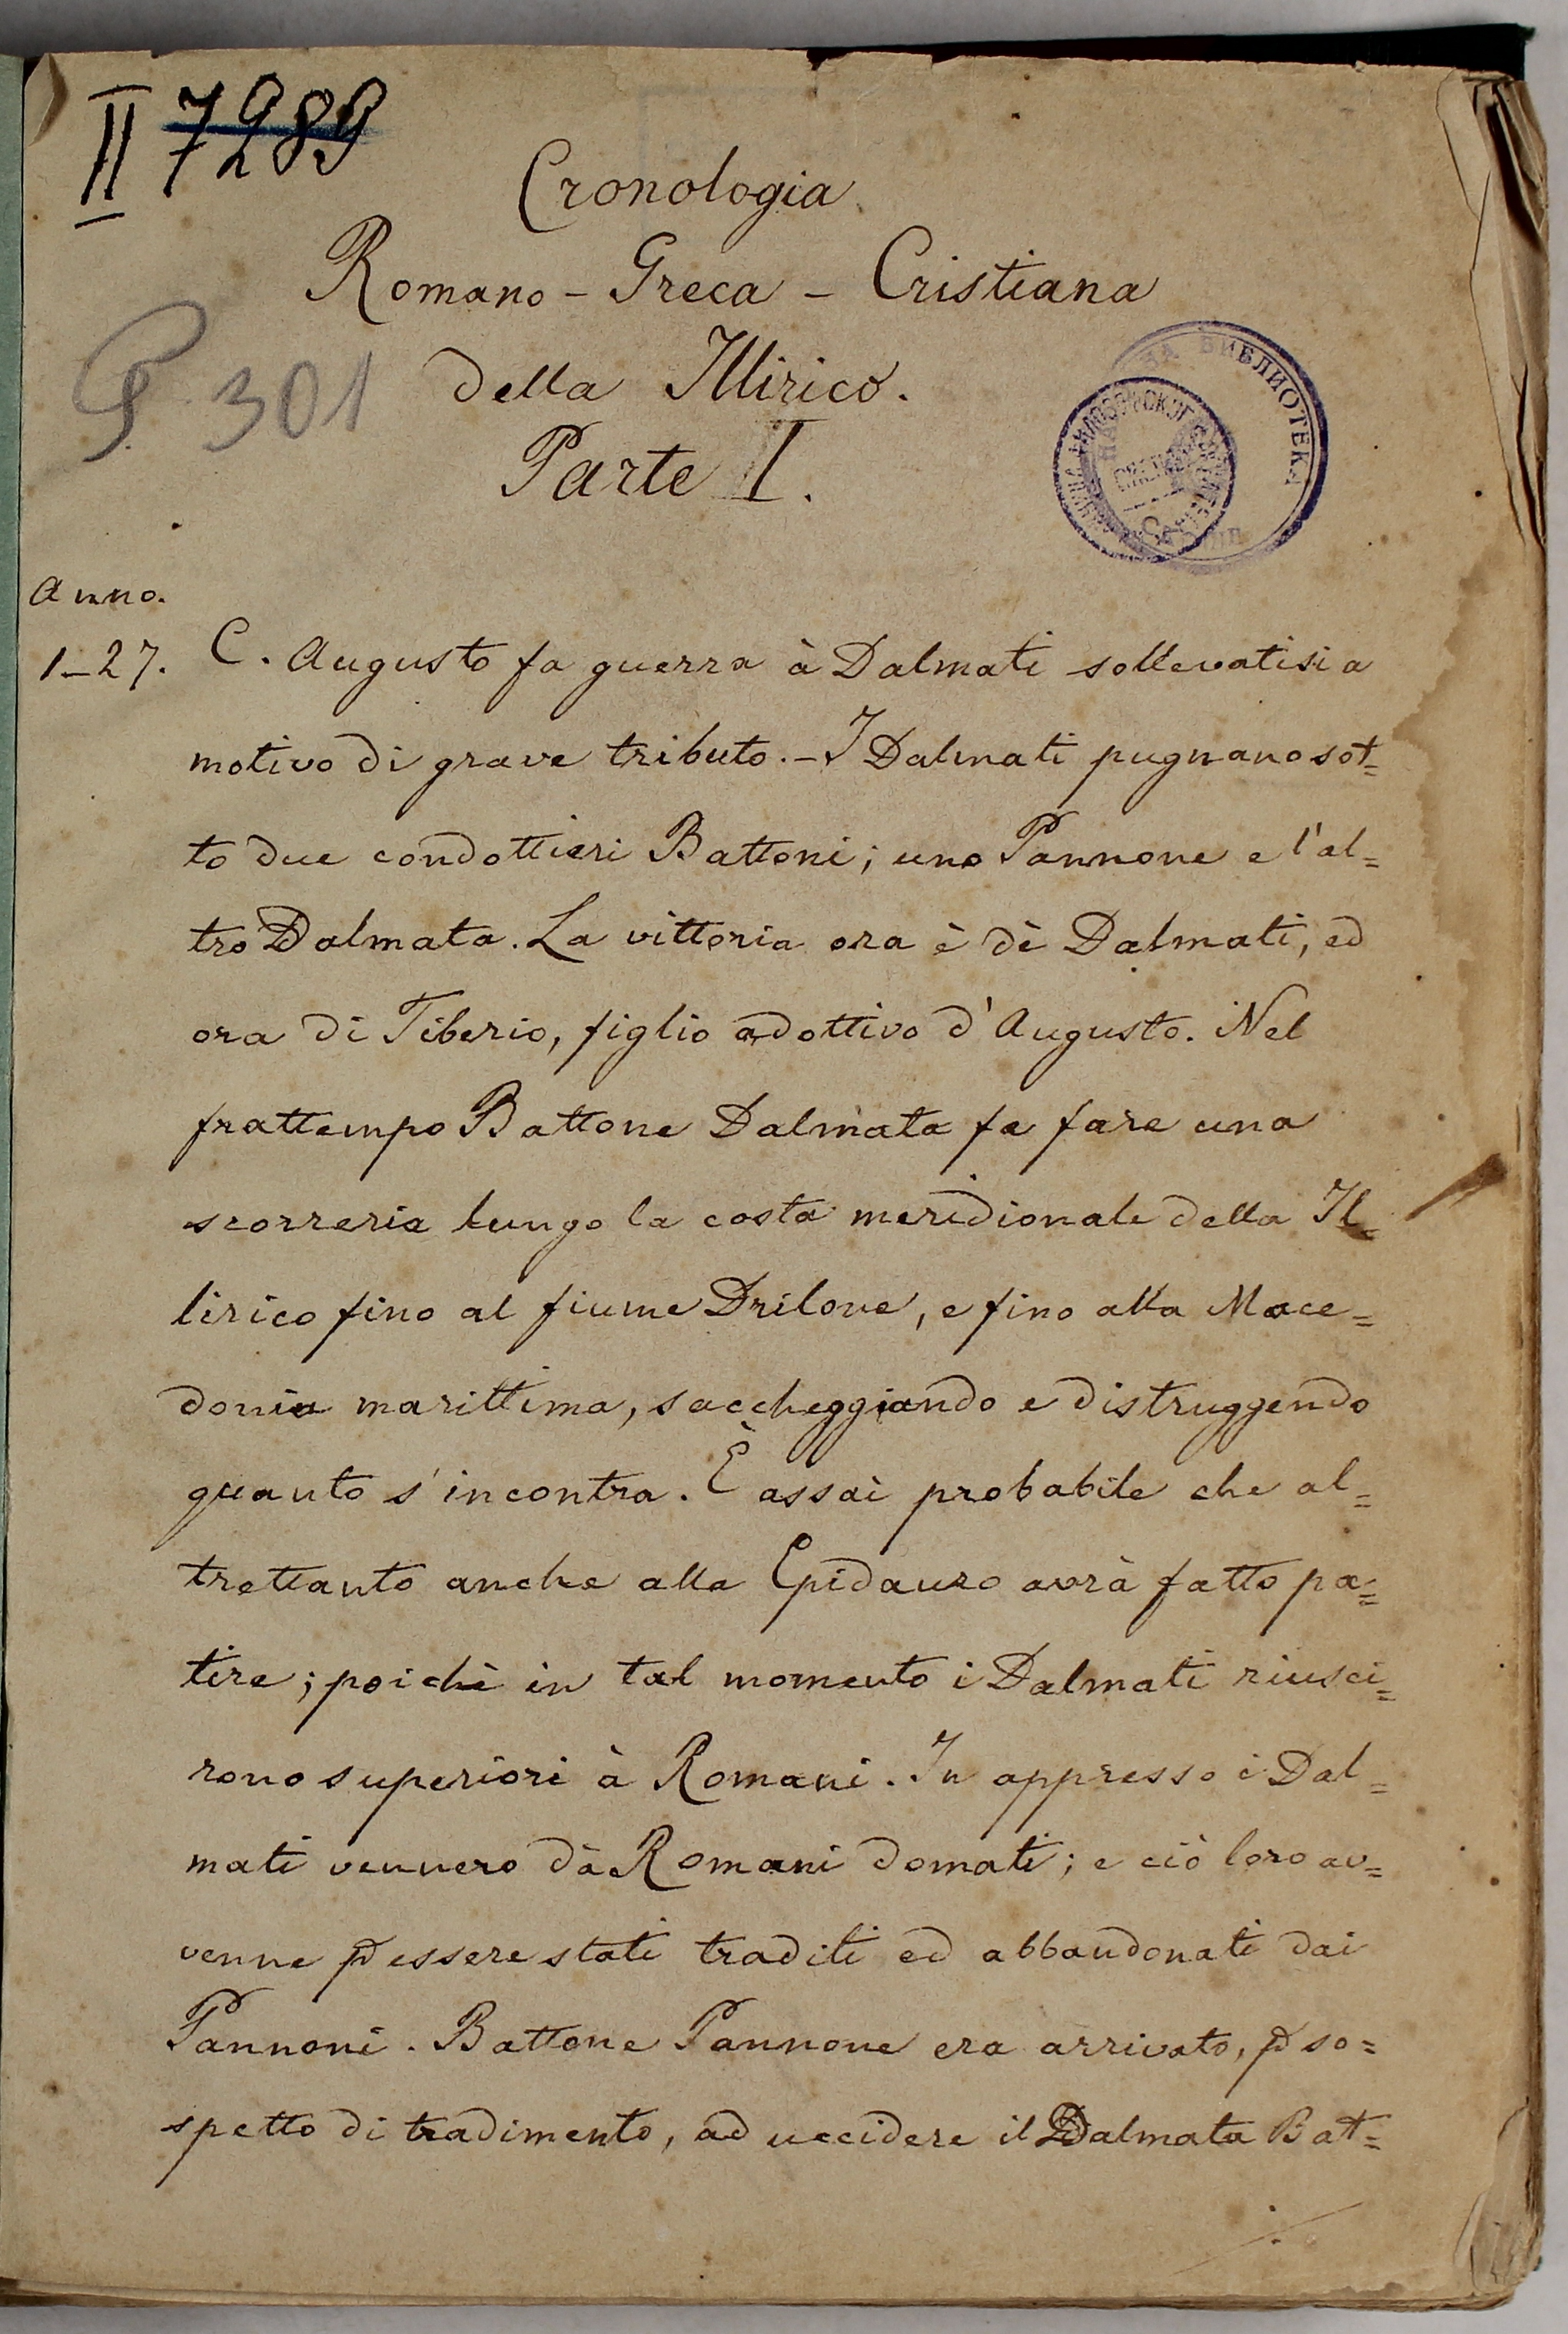 III 7988
Cronologia
Romano - Greca - Cristiana
P 301
della Illirico.
Parte I.
НА БИБЛИОТЕКА
Anno.
1-27. C. Augusto fa guerra à Dalmati sollevatisi a
motivo di grave tributo. - I Dalmati pugnano sot=
to due condottieri Battoni; uno Pannone e l'al=
tro Dalmata. La vittoria ora è dè Dalmati, ed
ora di Tiberio, figlio adottivo d'Augusto. Nel
frattempo Battone Dalmata fa fare una
scorreria lungo la costa meridionale della Il=
lirico fino al fiume Drilone, e fino alla Mace=
donia marittima, saccheggiando e distruggendo
quanto s'incontra. È assai probabile che al=
trettanto anche alla Epidauro avrà fatto pa=
tire; poichè in tal momento i Dalmati riusci=
rono superiori à Romani. In appresso i Dal=
mati vennero dà Romani domati; e ciò loro av=
venne p essere stati traditi ed abbandonati dai
Pannoni. Battone Pannone era arrivato, p so=
spetto di tradimento, ad uccidere il Dalmata Bat=